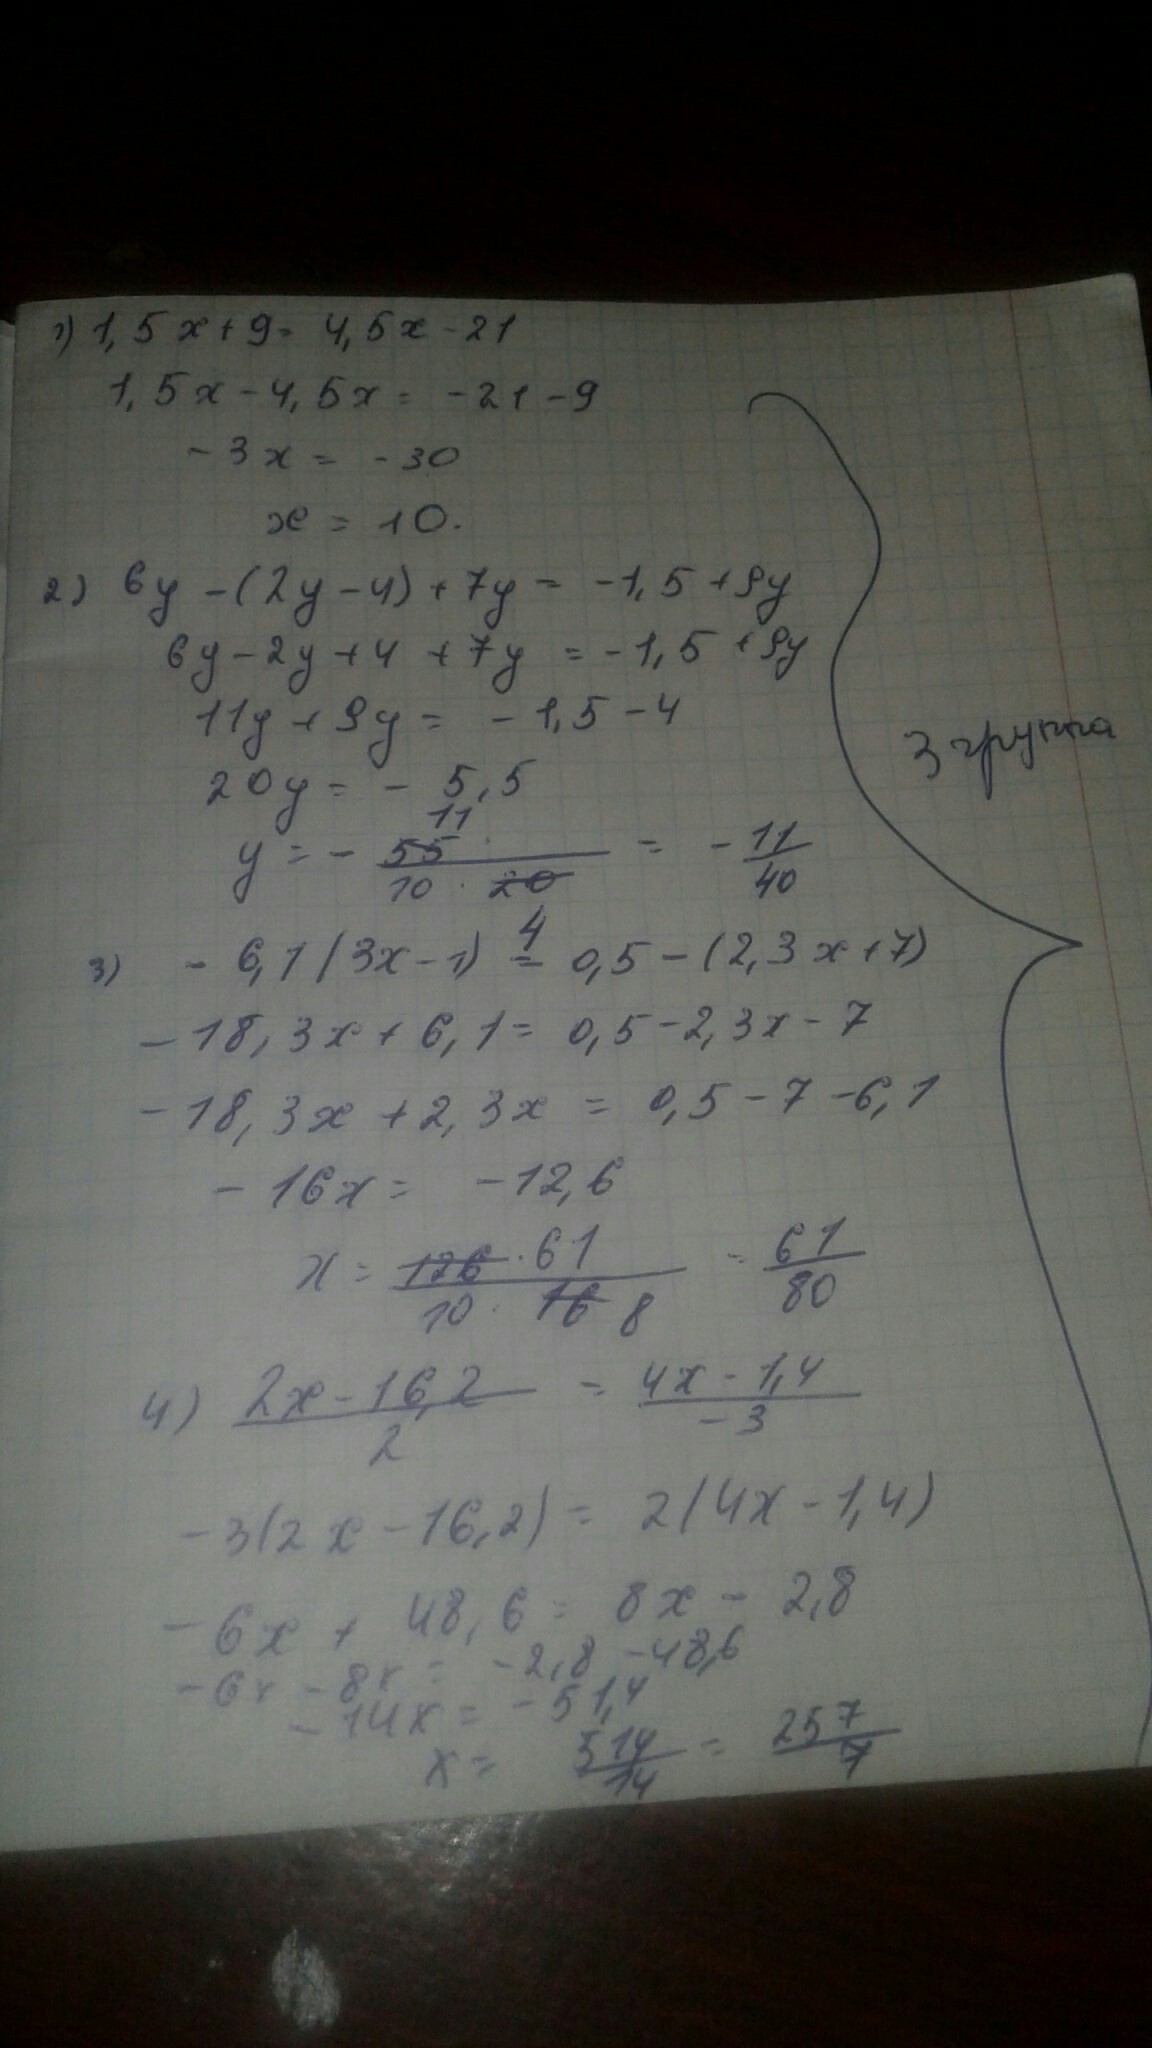 1) 1,5x+9= 4,5x-21
1,5x-4,5x= -21-9
-3x= -30
x=10.
2) 6y-(2y-4)+7y= -1,5+9y
6y-2y+4+7y=-1,5+9y
11y+9y= -1,5-4
20y= - 5,5
y=- 55 11 / 10 · 20 4 = - 11/40
3) -6,1(3x-1)=0,5-(2,3x+7)
-18,3x+6,1=0,5-2,3x-7
-18,3x+2,3x=0,5-7-6,1
-16x= -12,6
x= 126 · 61 / 10 · 16 8 = 61/80
4) 2x-16,2 / 2 = 4x-1,4 / -3
-3(2x-16,2)=2(4x-1,4)
-6x+48,6=8x-2,8
-6x-8x= -2,8-48,6
-14x= -51,4
x= 514/14 = 257/7
3 группа